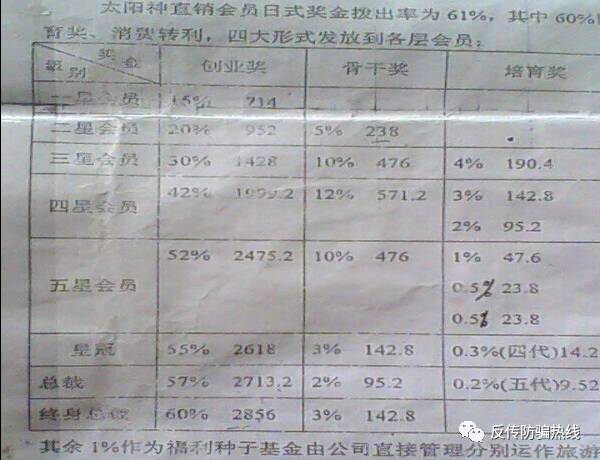 太阳神直销会员日式奖金拨出率为61%，其中60%
育奖、消费转利，四大形式发放到各层会员：
奖金
级别 创业奖 骨干奖 培育奖
一星会员 15% 714
二星会员 20% 952 5% 238
三星会员 30% 1428 10% 476 4% 190.4
四星会员 42% 1999.2 12% 571.2 3% 142.8
2% 95.2
五星会员 52% 2475.2 10% 476 1% 47.6
0.5% 23.8
0.5% 23.8
皇冠 55% 2618 3% 142.8 0.3%(四代)14.2
总裁 57% 2713.2 2% 95.2 0.2%(五代)9.52
终身总裁 60% 2856 3% 142.8
其余1%作为福利种子基金由公司直接管理分别运作旅游
反传防骗热线